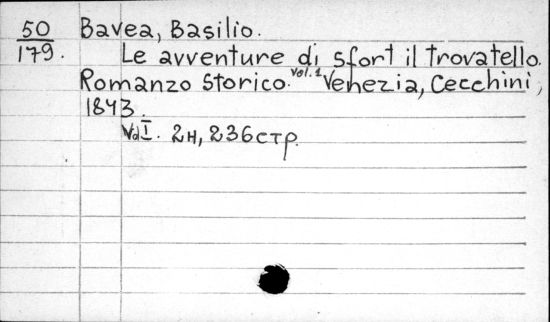 50 Bavea, Basilio.
179. Le avventure di Sfort il trovatello.
Romanzo storico. Vol. 1 Venezia, Cecchini,
1843.
Vol I. 2н, 236стр.